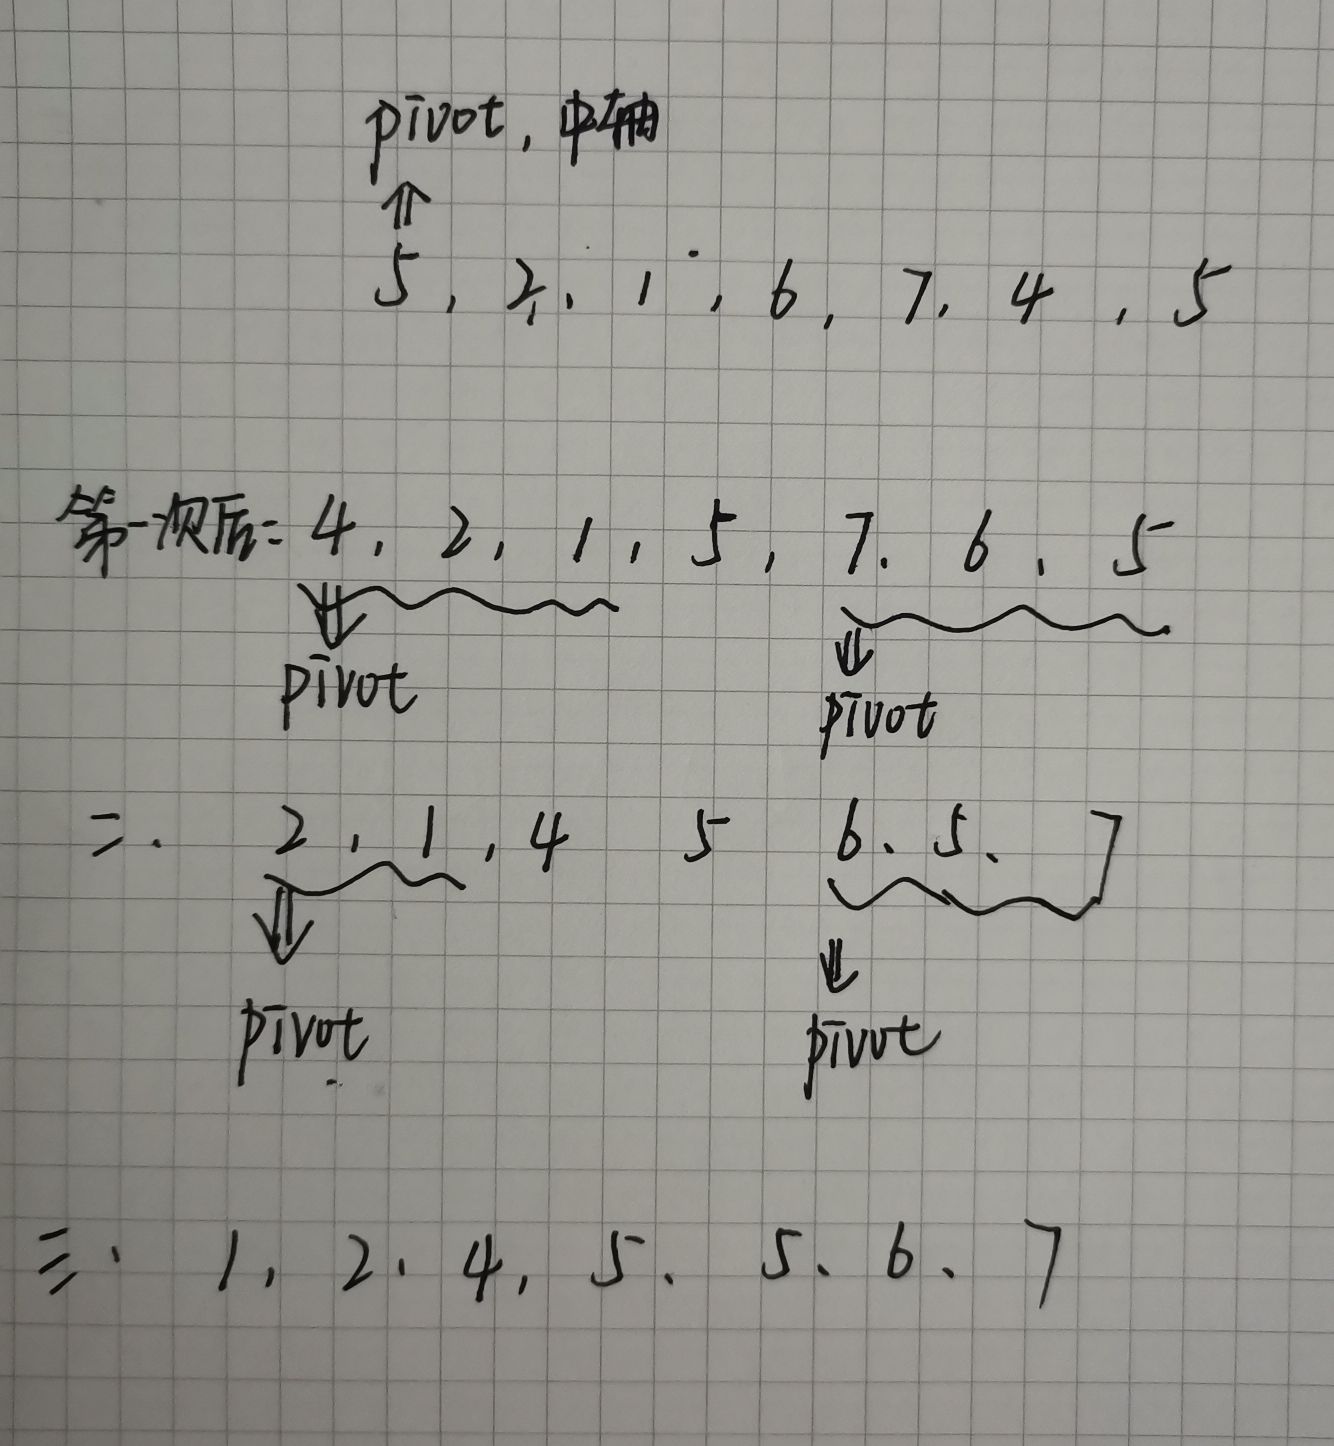 pivot, 中轴
5, 2, 1, 6, 7, 4, 5
第一次后: 4, 2, 1, 5, 7. 6, 5
pivot pivot
二. 2, 1, 4 5 6、5、7
pivot pivot
三、1, 2, 4, 5、5、6、7